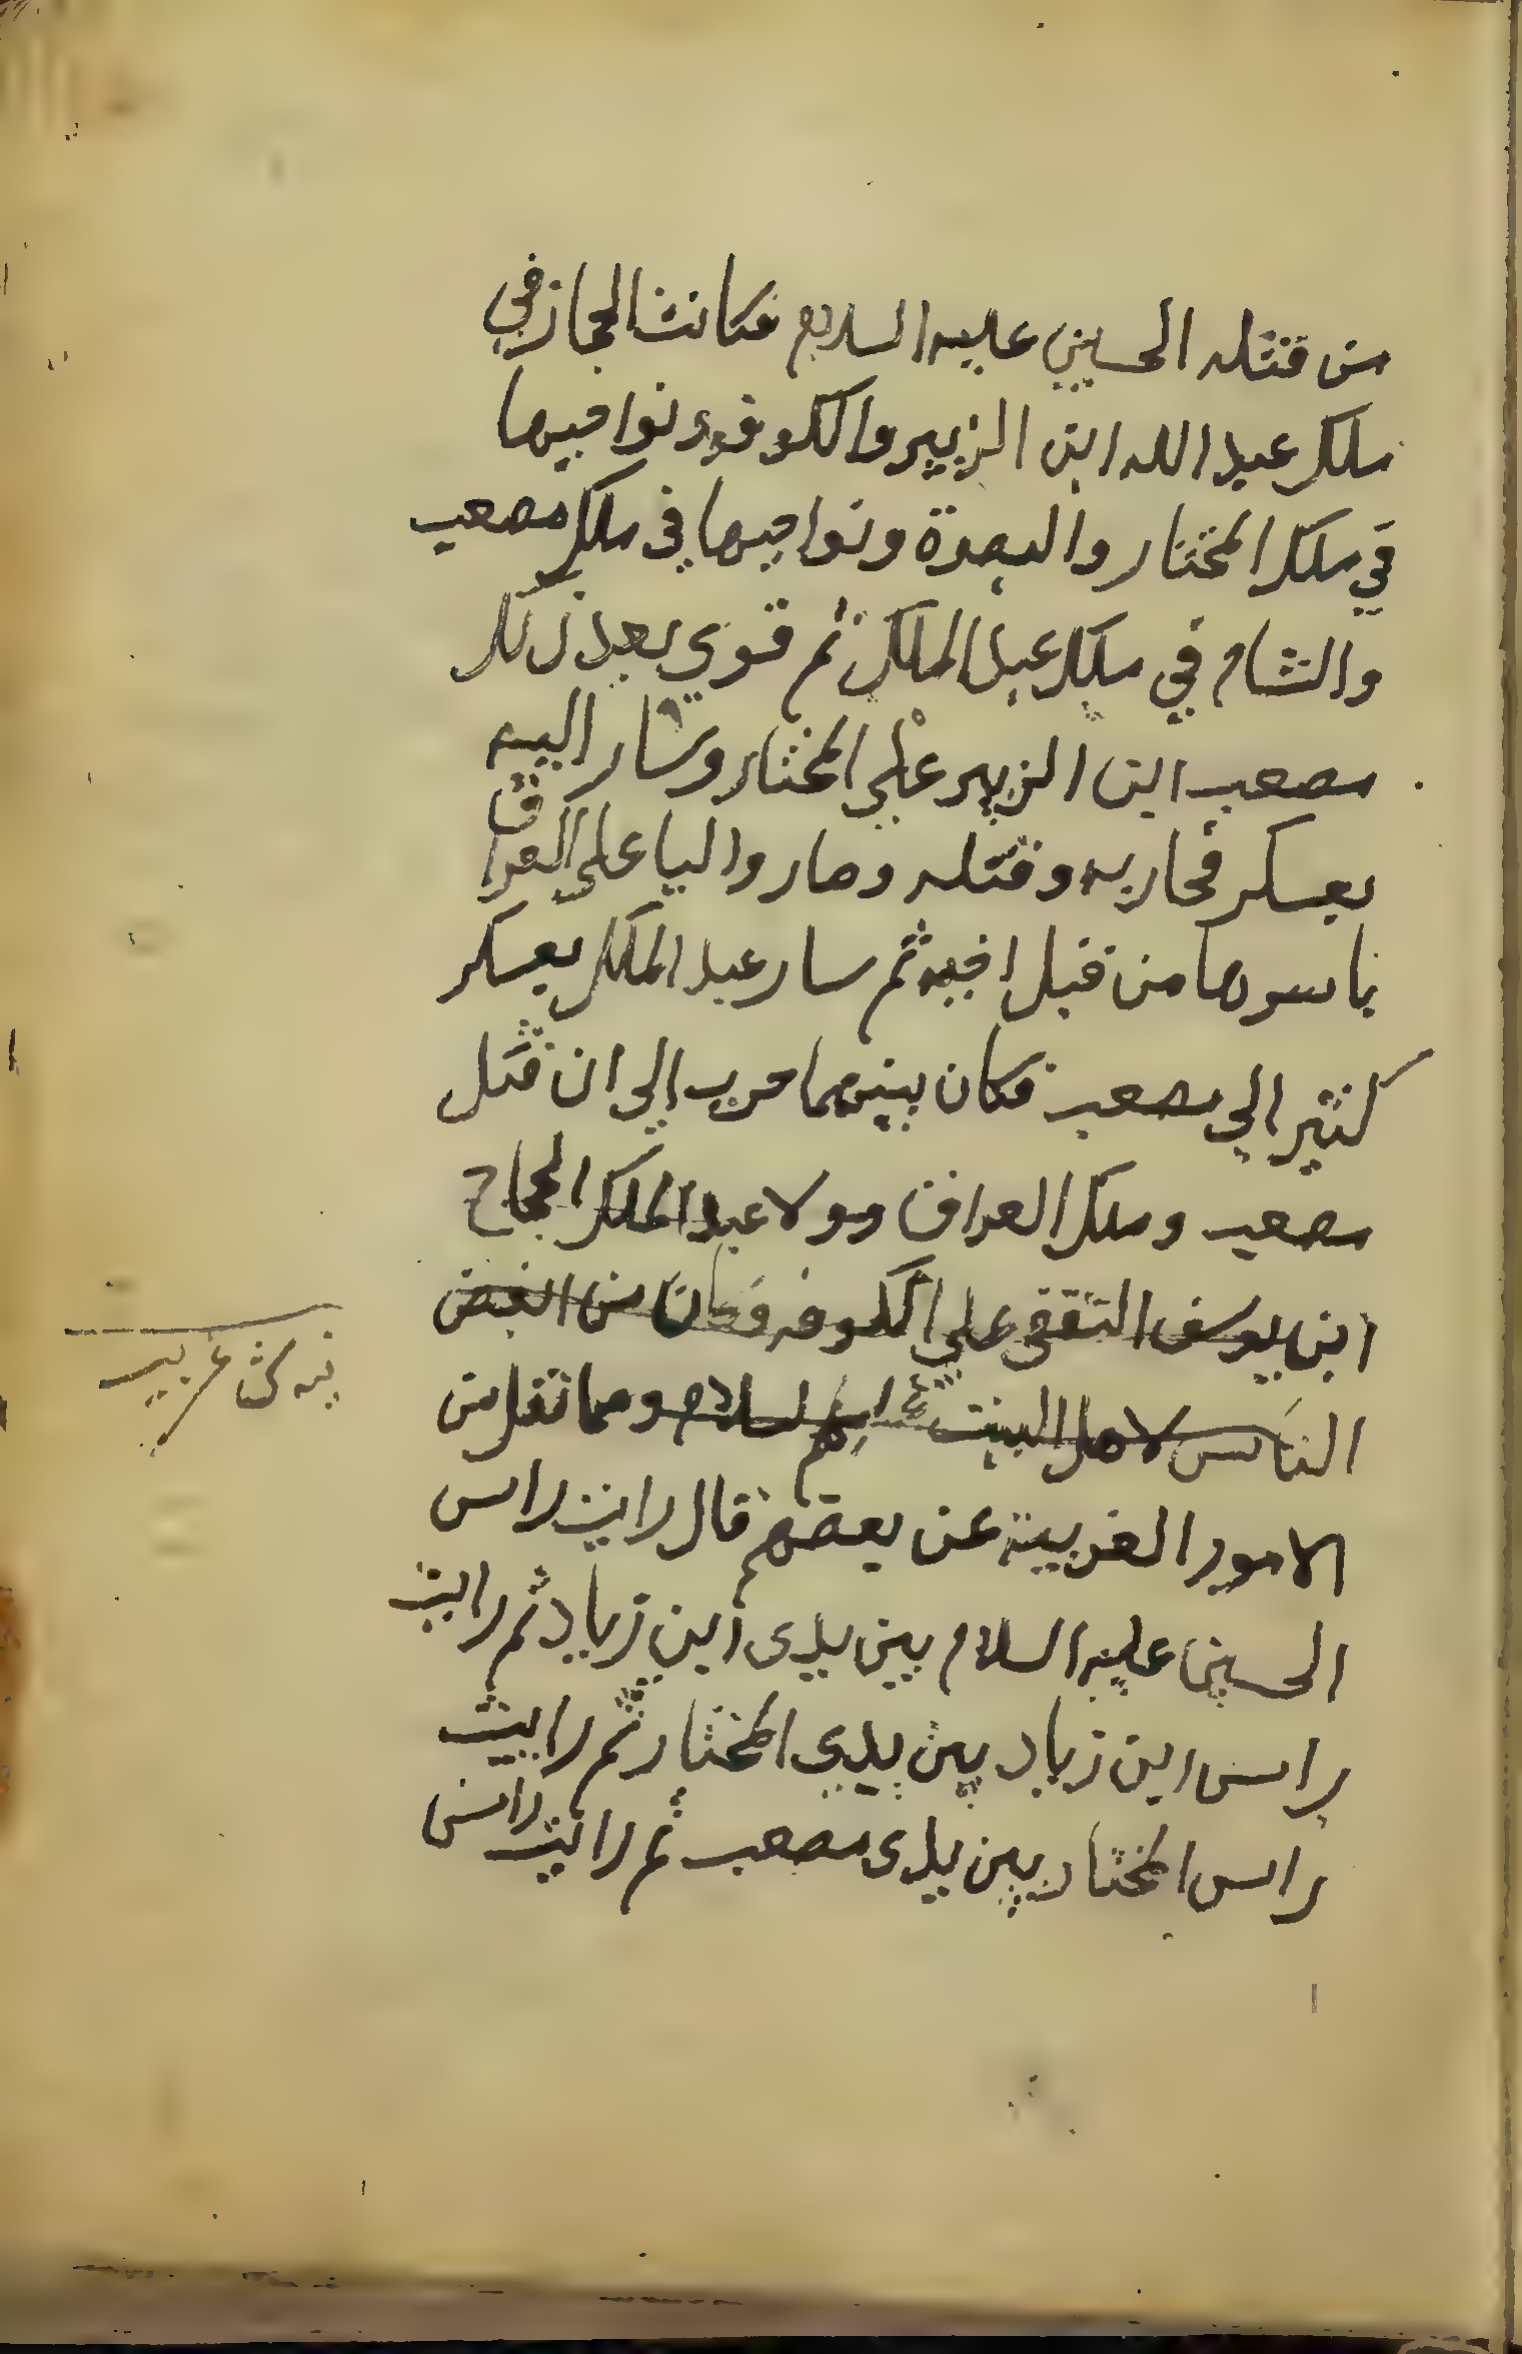 من قتله الحسين عليه السلام فكانت الحجاز في
ملك عبد الله ابن الزبير والكوفه ونواحيها
في ملك المختار والبصرة ونواحيها في ملك مصعب
والشام في ملك عبد الملك ثم قوي بعد ذلك
مصعب ابن الزبير على المختار وسار اليه
بعسكر فحاربه وقتله وصار واليا على العراق
باسرها من قبل اخيه ثم سار عبد الملك بعسكر
كثير الى مصعب فكان بينهما حرب الى ان قتل
مصعب وملك العراق وولا عبد الملك الحجاج
ابن يوسف الثقفي على الكوفه وكان من ابغض
الناس لاهل البيت عليهم السلام ومما نقل من
الامور الغريبة عن بعضهم قال رايت راس
الحسين عليه السلام بين يدى ابن زياد ثم رايت
راس ابن زياد بين يدي المختار ثم رايت
راس المختار بين يدى مصعب ثم رايت راس